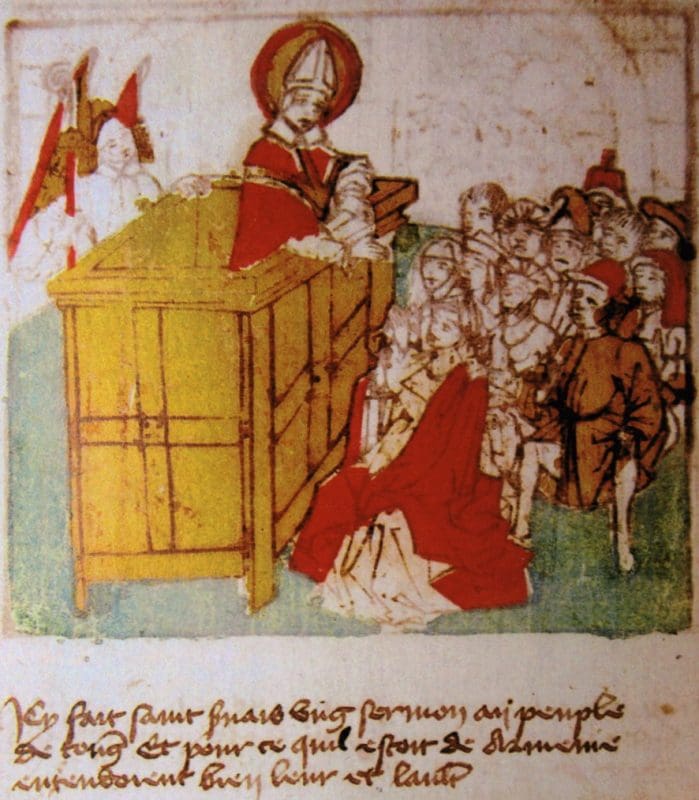 Icy fait saint s'uais vng sermon au peuple
de tong' Et pour ce quil estoit de Armenie
entendoient bien leur et laut'